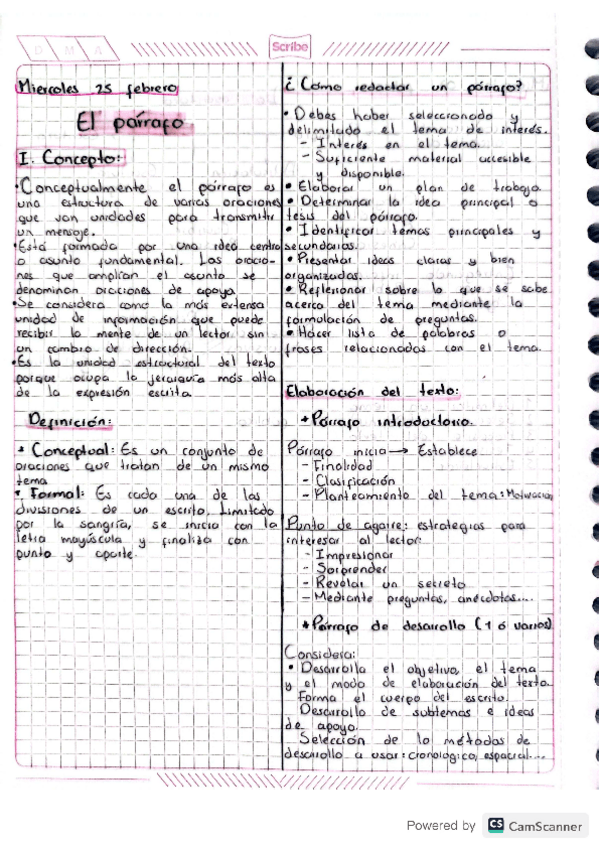 D M A
Scribe
Miercoles 25 febrero
El párrafo
I. Concepto:
• Conceptualmente el párrafo es
una estructura de varias oraciones
que van unidades para transmitir
un mensaje.
• Está formada por una idea centro
o asunto fundamental. Las oracio-
nes que amplían el asunto se
denominan oraciones de apoyo
• Se considera como la más extensa
unidad de información que puede
recibir la mente de un lector sin
un cambio de dirección.
• Es la unidad estructural del texto
porque ocupa la jerarquía más alta
de la expresión escrita.
Definición:
* Conceptual: Es un conjunto de
oraciones que tratan de un mismo
tema
* Formal: Es cada una de las
divisiones de un escrito, limitado
por la sangría, se inicia con la
letra mayúscula y finaliza con
punto y aparte.
¿Cómo redactar un párrafo?
• Debes haber seleccionado y
delimitado el tema de interés.
- Interés en el tema.
- Suficiente material accesible
y disponible.
• Elaborar un plan de trabajo
• Determinar la idea principal o
tesis del párrafo.
• Identificar temas principales y
secundarias.
• Presentar ideas claras y bien
organizadas.
• Reflexionar sobre lo que se sabe
acerca del tema mediante la
formulación de preguntas.
• Hacer lista de palabras o
frases relacionados con el tema.
Elaboración del texto:
* Párrafo introductorio.
Párrafo inicia → Establece
- Finalidad
- Clasificación
- Planteamiento del tema: Motivacion
Punto de agarre: estrategias para
interesar al lector:
- Impresionar
- Sorprender
- Revelar un secreto
- Mediante preguntas, anécdotas....
* Párrafo de desarollo (1 ó varios)
Considera:
• Desarrolla el objetivo, el tema
y el modo de elaboración del texto.
Forma el cuerpo del escrito.
Desarrollo de subtemas e ideas
de apoyo.
Selección de lo métodos de
descrollo a usar: cronológico, espacial....
Powered by CS CamScanner